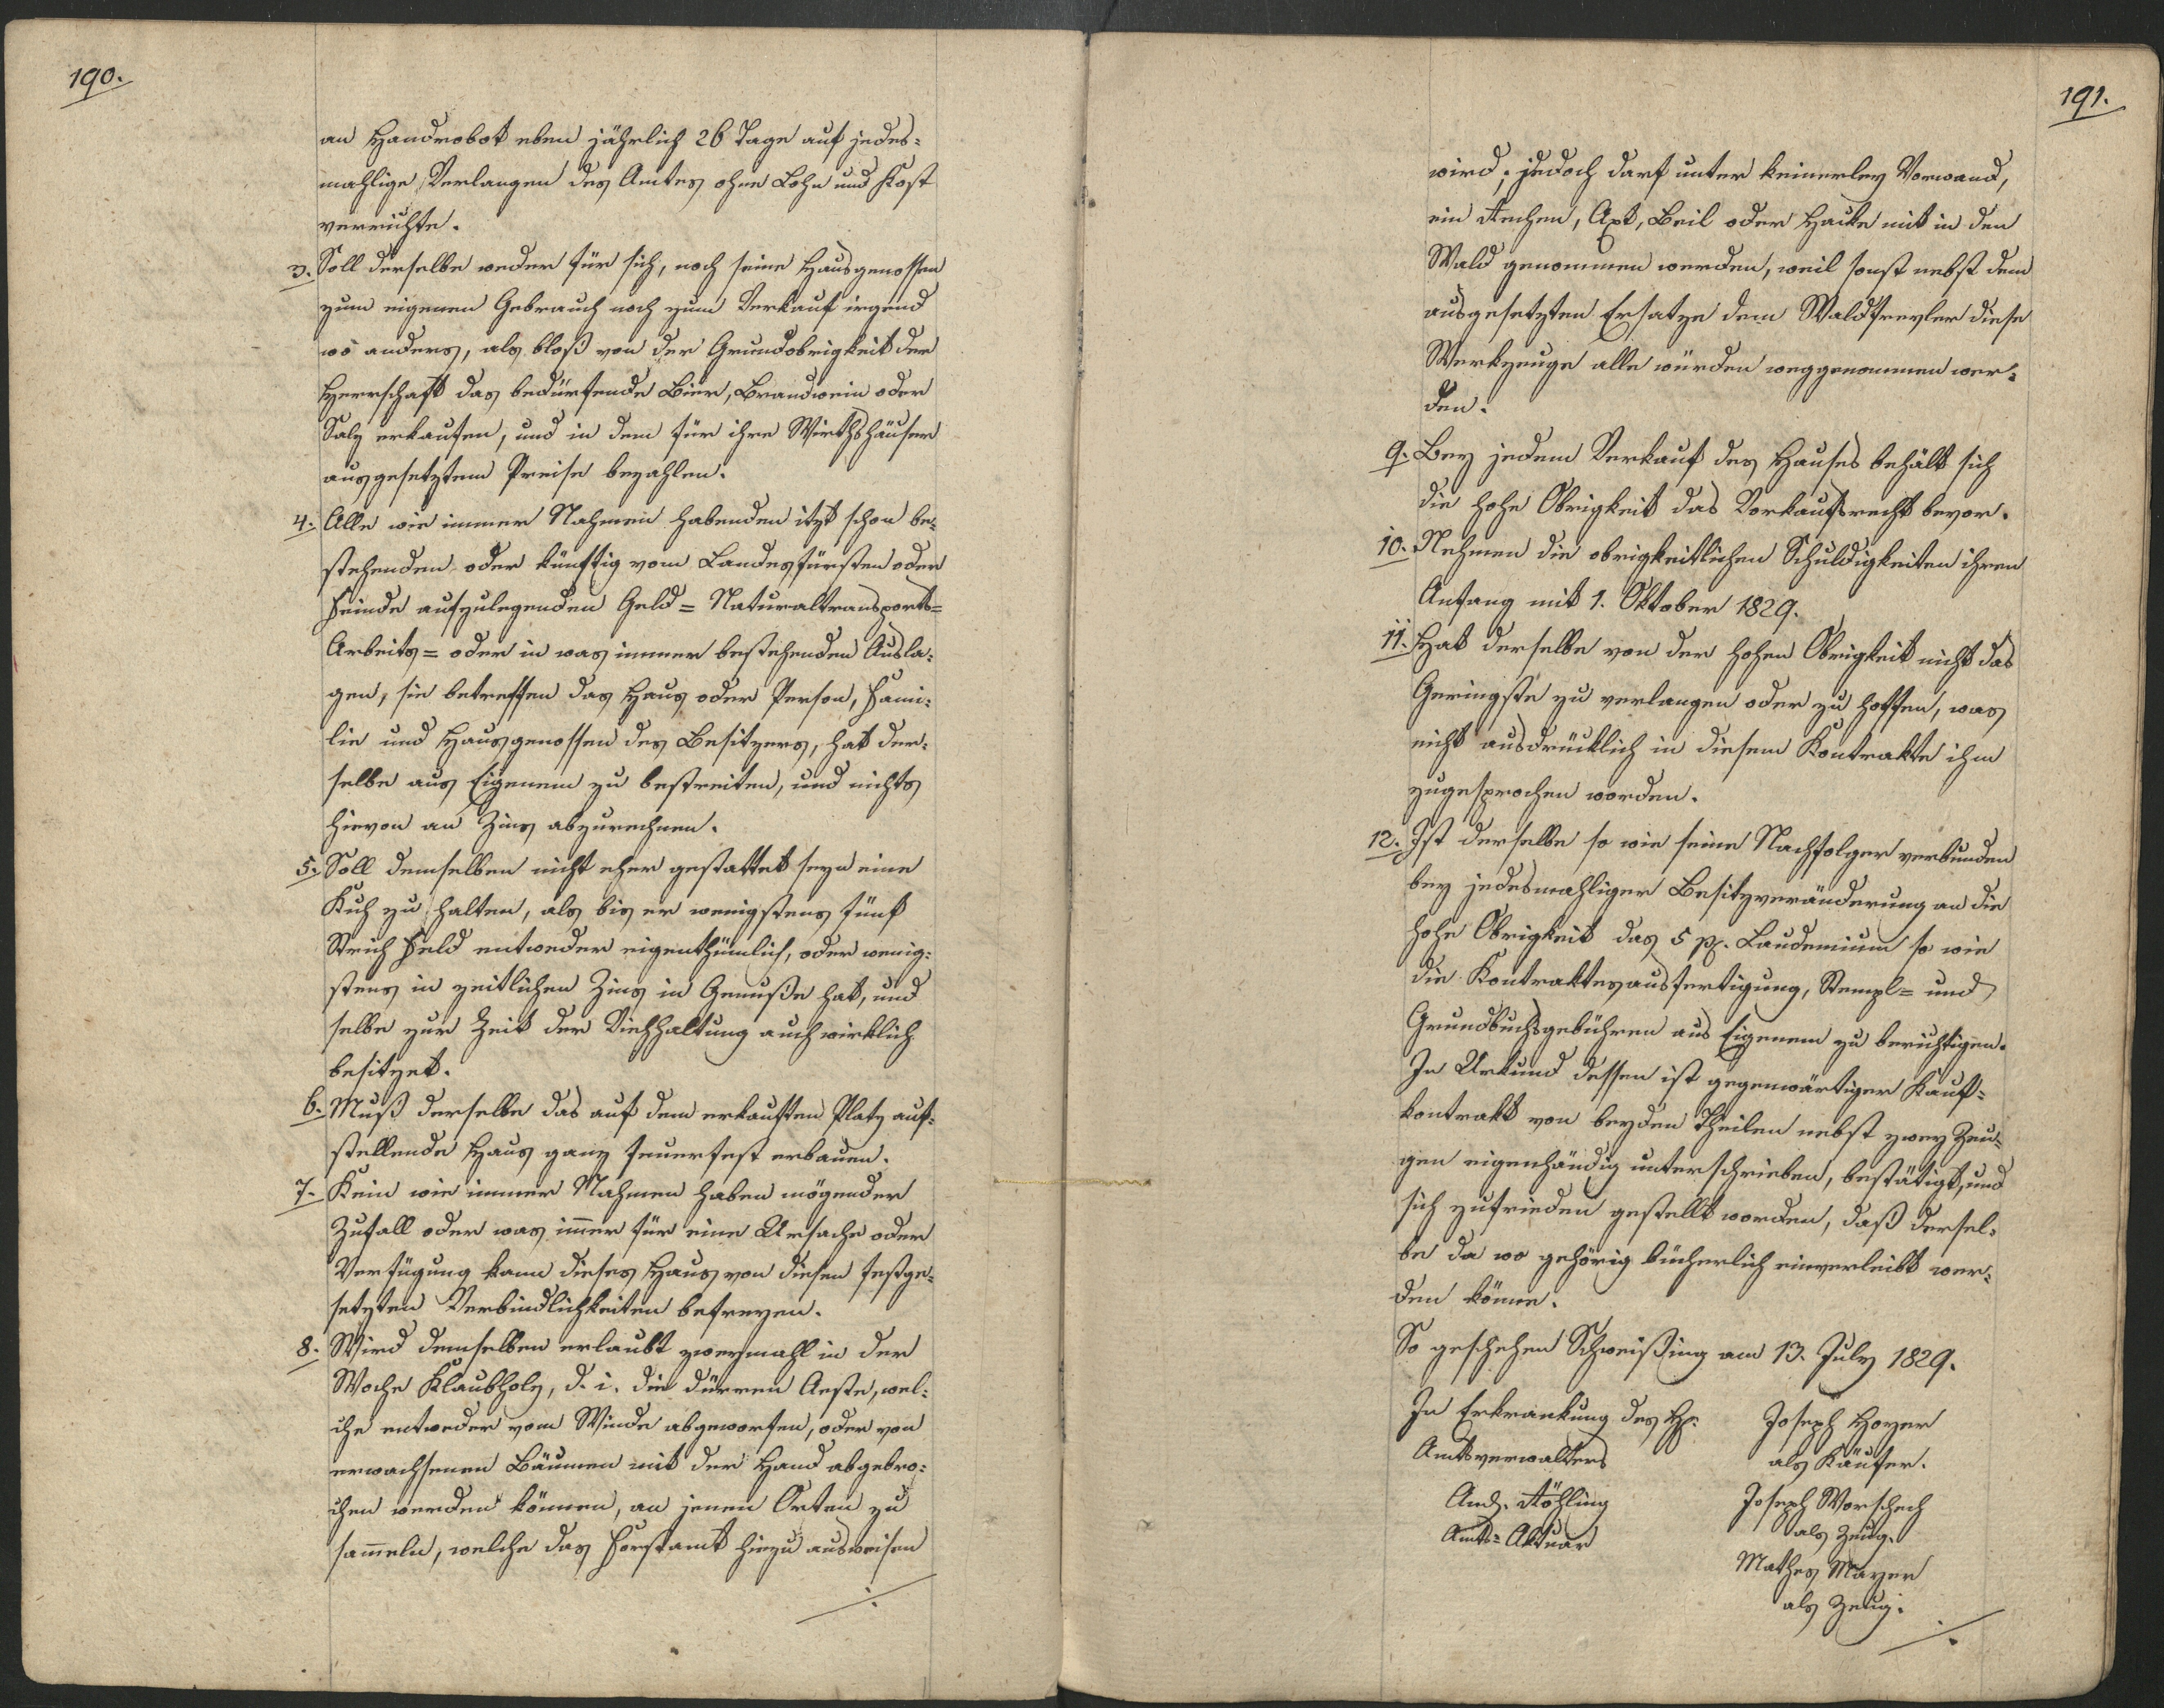 190.
an Handrobot eben jährlich 26 Tage auf jedes=
mahlige Verlangen des Amtes ohne Lohn und Kost
verrichte.
3. Soll derselbe weder für sich, noch seine Hausgenossen
zum eigenen Gebrauch noch zum Verkauf irgend
wo anders, als bloß von der Grundobrigkeit der
Herrschaft das bedürfende Bier, Brandwein oder
Salz erkaufen, und in dem für ihre Wirthshäuser
ausgesetztem Preise bezahlen.
4. Alle wie immer Nahmen habenden itzt schon be=
stehenden oder künftig vom Landesfürsten oder
Feinde aufzulegenden Geld= Naturaltransports=
Arbeits= oder in was immer bestehenden Ausla=
gen, sie betreffen das Haus oder Person, Fami=
lie und Hausgenossen des Besitzers, hat der=
selbe aus Eigenem zu bestreiten, und nichts
hievon an Zins abzurechnen.
5. Soll demselben nicht eher gestattet seyn eine
Kuh zu halten, als bis er wenigstens fünf
Strich Feld entweder eigenthümlich, oder wenig=
stens in zeitlichen Zins in Genuße hat, und
selbe zur Zeit der Viehhaltung auch wirklich
besitzet.
6. Muß derselbe das auf dem erkauften Platz auf=
stellende Haus ganz feuerfest erbauen.
7. Kein wie immer Nahmen haben mögender
Zufall oder was immer für eine Ursache oder
Verfügung kann dieses Haus von diesen festge=
setzten Verbindlichkeiten befreyen.
8. Wird demselben erlaubt zweymahl in der
Woche Klaubholz, d. i. die dürren Aeste, wel=
che entweder vom Winde abgeworfen, oder von
erwachsenen Bäumen mit der Hand abgebro=
chen werden können, an jenen Orten zu
sammeln, welche das Forstamt hiezu ausweisen
191.
wird; jedoch darf unter keinerley Vorwand,
ein Axt, Beil oder Hacke mit in den
Wald genommen werden, weil sonst nebst dem
ausgesetzten Ersatze dem Waldfrevler diese
Werkzeuge alle würden weggenommen wer=
den.
9. Bey jedem Verkauf des Hauses behält sich
die hohe Obrigkeit das Vorkaufsrecht bevor.
10. Nehmen die obrigkeitlichen Schuldigkeiten ihren
Anfang mit 1. Oktober 1829.
11. Hat derselbe von der hohen Obrigkeit nicht das
Geringste zu verlangen oder zu hoffen, was
nicht ausdrücklich in diesem Kontrakte ihm
zugesprochen worden.
12. Ist derselbe so wie seine Nachfolger verbunden
bey jedesmahliger Besitzveränderung an die
hohe Obrigkeit das 5 pc. Laudemium so wie
die Kontraktesausfertigung, Stempl= und
Grundbuchsgebühren aus Eigenem zu berichtigen.
In Urkund dessen ist gegenwärtiger Kauf=
kontrakt von beyden Theilen nebst zwey Zeu=
gen eigenhändig unterschrieben, bestätigt, und
sich zufrieden gestellt worden, daß dersel=
be da wo gehörig bücherlich einverleibt wer=
den könne.
So geschehen Schweißing am 13. July 1829.
In Erkrankung des H.
Amtsverwalters
Amts=Aktuar
Joseph Hoyer
als Käufer.
Joseph Worschech
als Zeug.
Mathes Mayer
als Zeug.